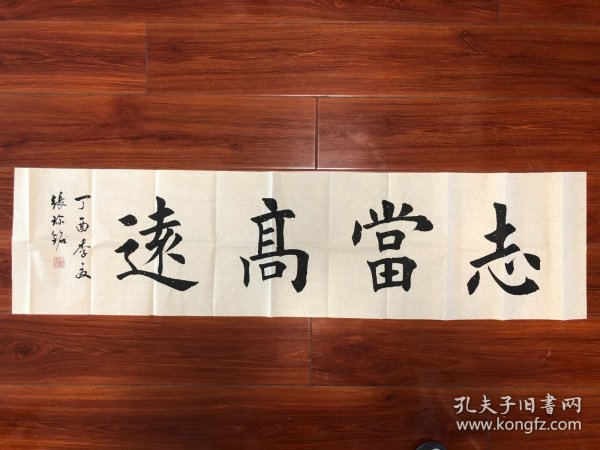 志當高遠
丁酉季夏
孔夫子旧書网
www.kongfz.com